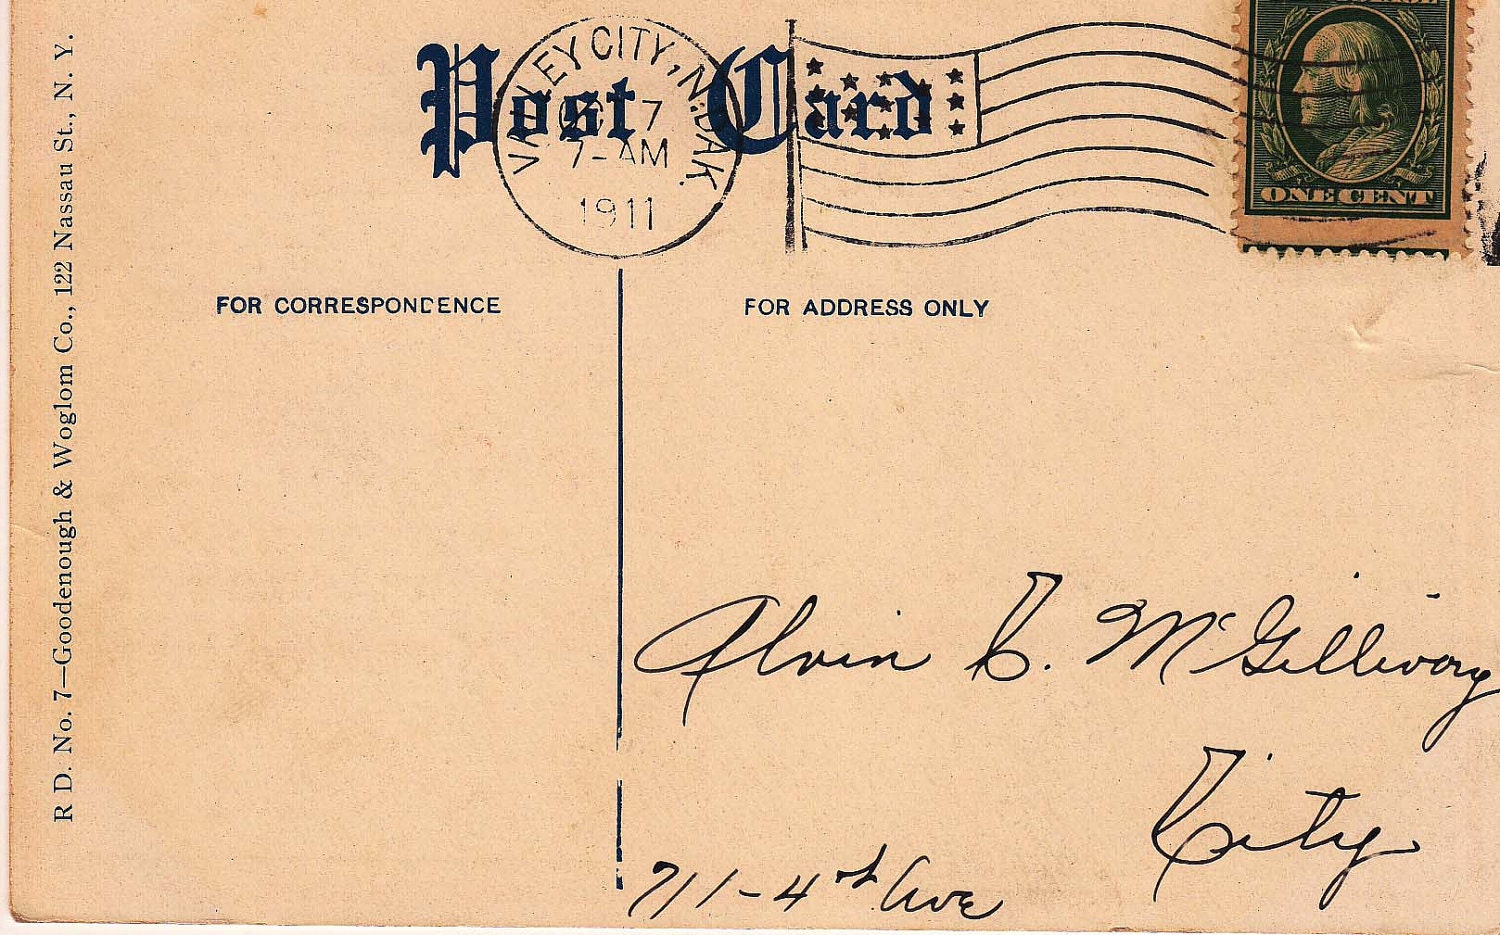 Post Card
VALLEY CITY, N. DAK.
7
7-AM
1911
ONE CENT
FOR CORRESPONDENCE
FOR ADDRESS ONLY
R D. No. 7—Goodenough & Woglom Co., 122 Nassau St., N. Y.
Alvin C. McGillivary
City
711-4th Ave